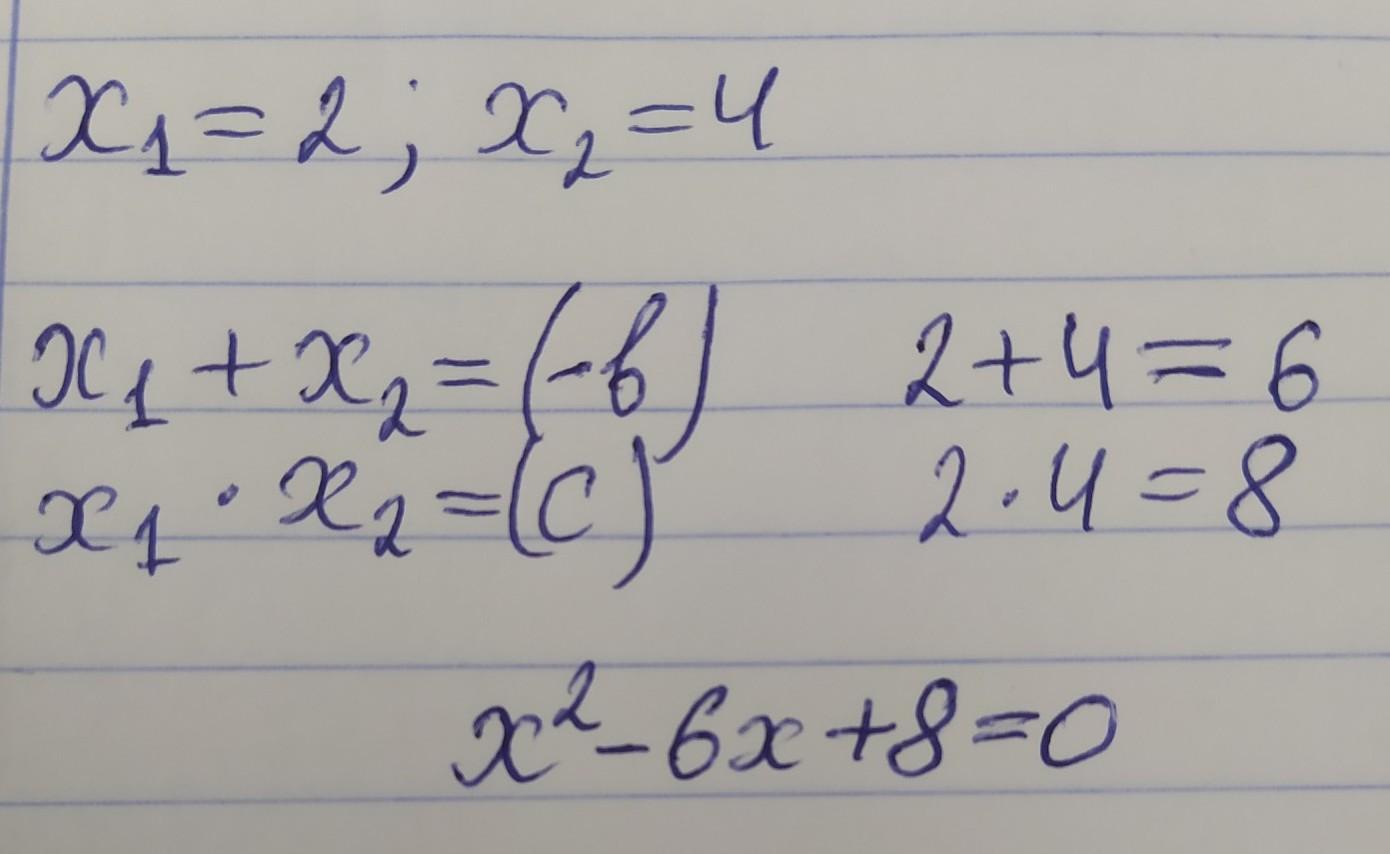 x₁ = 2 ; x₂ = 4
x₁ + x₂ = (-b) 2 + 4 = 6
x₁ · x₂ = (c) 2 · 4 = 8
x² - 6x + 8 = 0